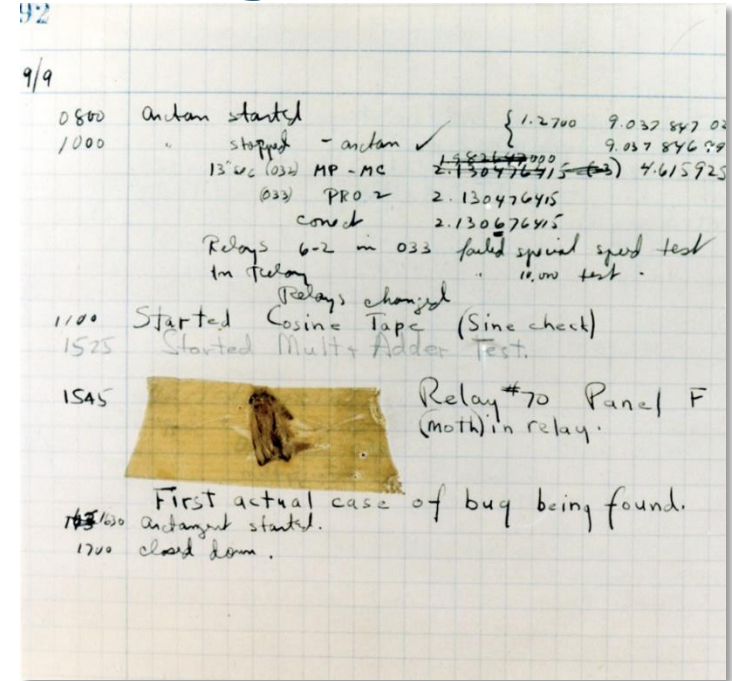 92
9/9
0800 Antan started { 1.2700 9.037 847 02
1000 " stopped - antan ✓ 9.037 846
13"uc (032) MP - MC 2.130476415 (-3) 4.615925
(033) PRO 2 2.130476415
conect 2.130676415
Relays 6-2 in 033 failed special speed test
In Relay " 10,000 test .
Relays changed
1100 Started Cosine Tape (Sine check)
1525 Started Mult+ Adder Test.
1545 Relay #70 Panel F
(moth) in relay.
First actual case of bug being found.
1630 antangent started.
1700 closed down .